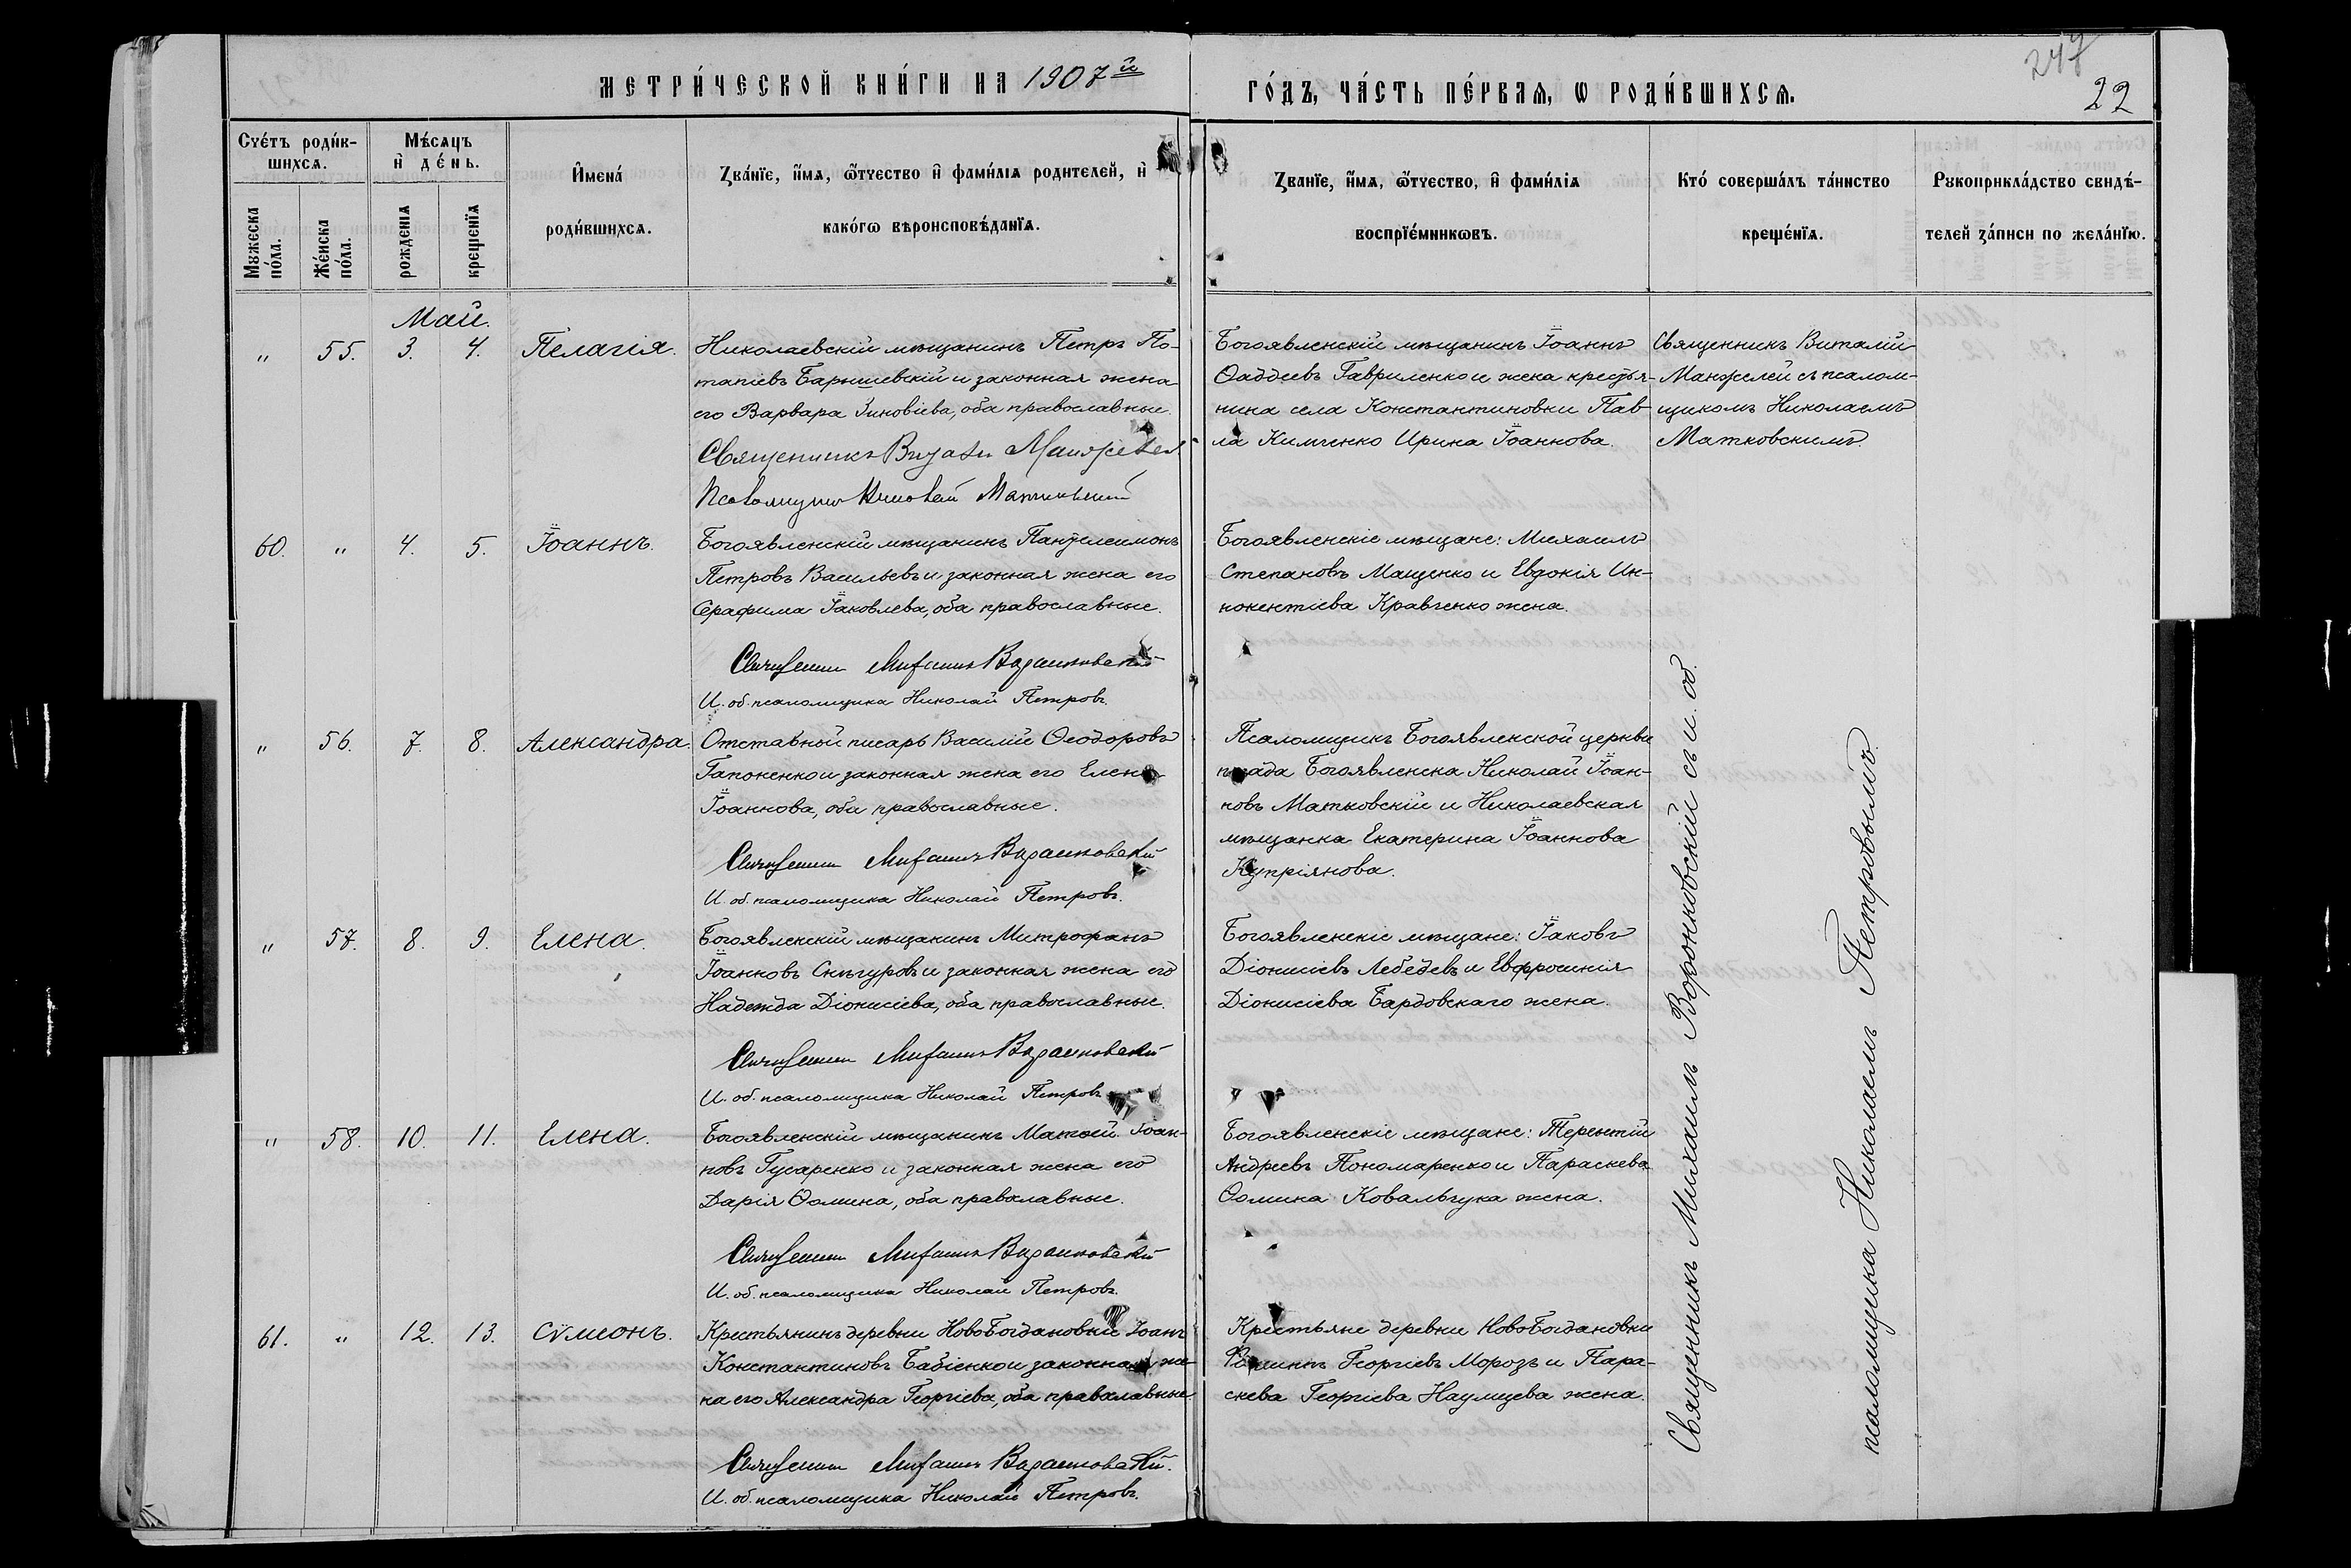 МЕТРИ́ЧЕСКОЙ КНИ́ГИ НА 1907й
ГО́ДЪ, ЧА́СТЬ ПЕ́РВАѦ, Ѡ РОДИ́ВШИХСѦ.
247
22
Сче́тъ роди́в-
шихсѧ.
Мꙋжеска
по́ла.
Же́нска
по́ла.
Мѣ́сѧцъ
и҆ де́нь.
рожденїѧ
крещенїѧ
И҆мена́
роди́вшихсѧ.
Зва́нїе, и҆́мѧ, ѻ҆́тчество и҆ фами́лїѧ родителей, и҆
како́гѡ вѣроисповѣ́данїѧ.
Званїе, и҆́мѧ, ѻ҆́тчество, и҆ фами́лїѧ
воспрїе́мникѡвъ.
Кто́ соверша́лъ та́инство
креще́нїѧ.
Рꙋкоприкла́дство свидѣ́-
телей за́писи по жела́нїю.
Май.
" 55. 3. 4. Пелагія.
Николаевскій мѣщанинъ Петръ По-
тапіевъ Барышевскій и законная жена
его Варвара Зиновіева, оба православные.
Священникъ Виталій Манжелей
Псаломщикъ Николай Матковскій
Богоявленскій мѣщанинъ Іоаннъ
Ѳаддеевъ Гавриленко и жена крестья-
нина села Константиновки Пав-
ла Кимченко Ирина Іоаннова.
Священникъ Виталій
Манжелей съ псалом-
щикомъ Николаемъ
Матковскимъ.
60. " 4. 5. Іоаннъ.
Богоявленскій мѣщанинъ Пантелеимонъ
Петровъ Васильевъ и законная жена его
Серафима Іаковлева, оба православные.
Священникъ Михаилъ Воронковскій
И. об. псаломщика Николай Петровъ.
Богоявленскіе мѣщане: Михаилъ
Степановъ Мащенко и Евдокія Ин-
нокентіева Кравченко жена.
" 56. 7. 8. Александра.
Отставной писарь Василій Ѳеодоровъ
Гапоненко и законная жена его Елена
Іоаннова, оба православные.
Священникъ Михаилъ Воронковскій
И. об. псаломщика Николай Петровъ.
Псаломщикъ Богоявленской церкви
посада Богоявленска Николай Іоан-
новъ Матковскій и Николаевская
мѣщанка Екатерина Іоаннова
Купріянова.
" 57. 8. 9. Елена.
Богоявленскій мѣщанинъ Митрофанъ
Іоанновъ Снѣгуровъ и законная жена его
Надежда Діонисіева, оба православные.
Священникъ Михаилъ Воронковскій
И. об. псаломщика Николай Петровъ
Богоявленскіе мѣщане: Іаковъ
Діонисіевъ Лебедевъ и Евфросинія
Діонисіева Бардовскаго жена.
" 58. 10. 11. Елена.
Богоявленскій мѣщанинъ Матѳей Іоан-
новъ Гусаренко и законная жена его
Дарія Ѳомина, оба православные.
Священникъ Михаилъ Воронковскій
И. об. псаломщика Николай Петровъ.
Богоявленскіе мѣщане: Терентій
Андреевъ Пономаренко и Параскева
Ѳомина Ковальчука жена.
61. " 12. 13. Сѵмеонъ.
Крестьянинъ деревни НовоБогдановки Іоанъ
Константиновъ Бабіенко и законная же-
на его Александра Георгіева, оба православные.
Священникъ Михаилъ Воронковскій.
И. об. псаломщика Николай Петровъ.
Крестьяне деревни НовоБогдановки
Георгіевъ Морозъ и Пара-
скева Георгіева Наумцева жена.
Священникъ Михаилъ Воронковскій съ и. об.
псаломщика Николаемъ Петровымъ.